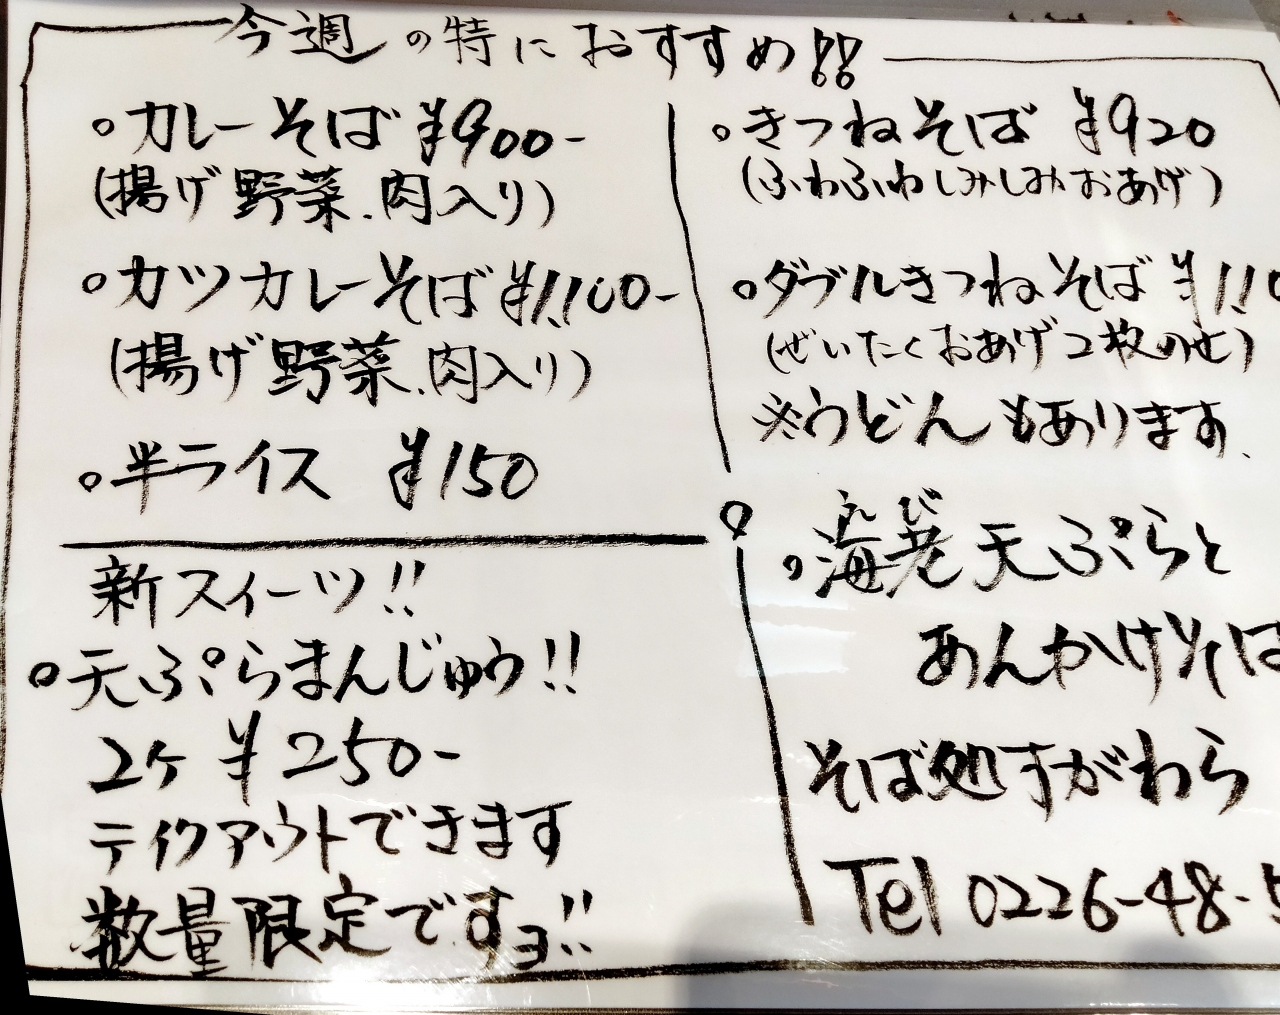 今週の特におすすめ!!
・カレーそば ¥900-
(揚げ野菜、肉入り)
・カツカレーそば ¥1,100-
(揚げ野菜、肉入り)
・半ライス ¥150
新スイーツ!!
・天ぷらまんじゅう!!
2ケ ¥250-
テイクアウトできます
数量限定ですヨ!!
・きつねそば ¥920
(ふわふわしみしみおあげ)
・ダブルきつねそば ¥1,10
(ぜいたくおあげ2枚のせ)
※うどんもあります、
えび
・海老天ぷらと
あんかけそば
そば処すがわら
Tel 0226-48-5